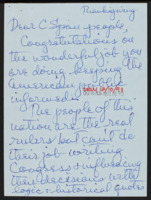 Thanksgiving
Dear C Span people,
Congratulations on
the wonderful job you
are doing keeping the
American
informed.
The people of this
nation are the real
rulers but can't do
their job writing
Congress & influencing
their decisions with
logic & historical quotes